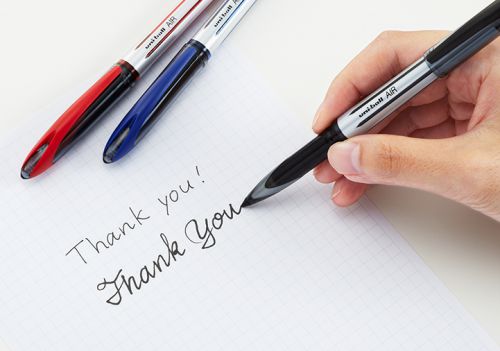 uni-ball AIR
uni-ball AIR
uni-ball AIR
Thank you!
Thank You